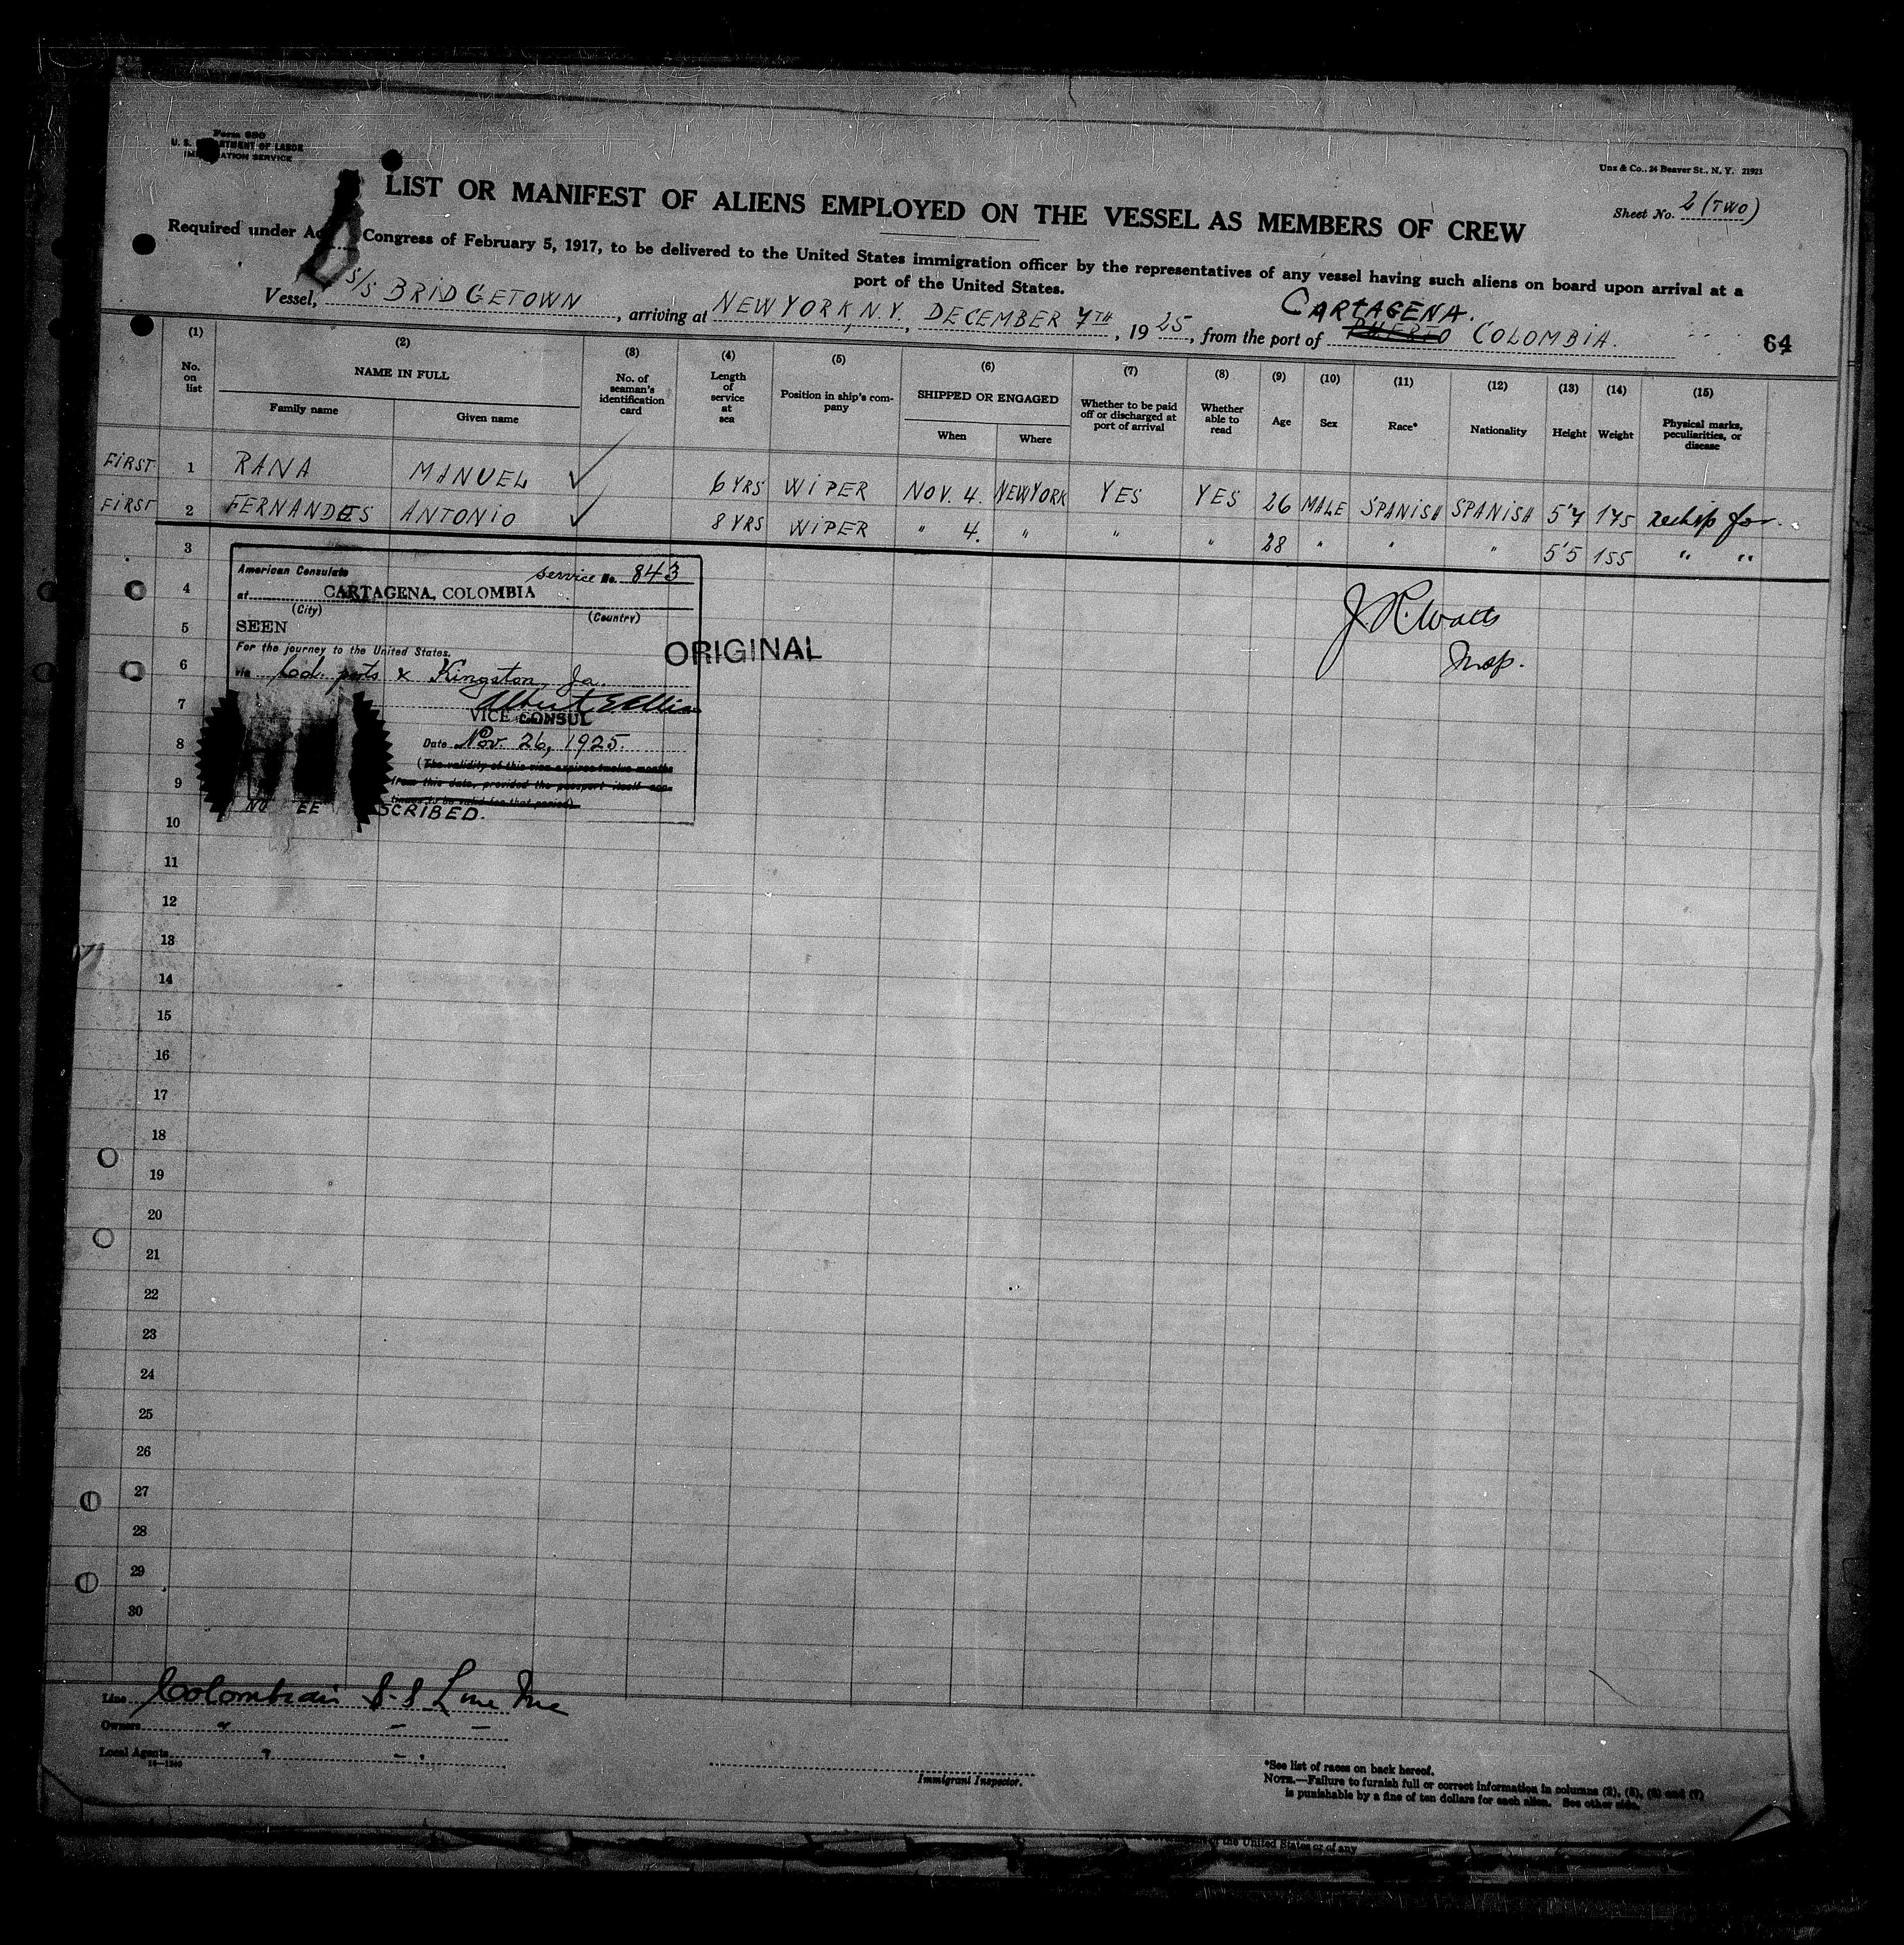 Form 680
U. S. DEPARTMENT OF LABOR
IMMIGRATION SERVICE
Unz & Co., 24 Beaver St., N. Y. 21923
Sheet No. 2 (TWO)
LIST OR MANIFEST OF ALIENS EMPLOYED ON THE VESSEL AS MEMBERS OF CREW
Required under Act Congress of February 5, 1917, to be delivered to the United States immigration officer by the representatives of any vessel having such aliens on board upon arrival at a
port of the United States.
CARTAGENA.
Vessel, S/S BRIDGETOWN, arriving at NEW YORK, N.Y., DECEMBER 7TH, 1925, from the port of PUERTO COLOMBIA.
64
(1) (2) (3) (4) (5) (6) (7) (8) (9) (10) (11) (12) (13) (14) (15)
No. on list NAME IN FULL Family name Given name No. of seaman's identification card Length of service at sea Position in ship's company SHIPPED OR ENGAGED When Where Whether to be paid off or discharged at port of arrival Whether able to read Age Sex Race* Nationality Height Weight Physical marks, peculiarities, or disease
FIRST 1 RANA MANUEL ✓ 6 YRS WIPER NOV. 4. NEW YORK YES YES 26 MALE SPANISH SPANISH 5'7 175 reship for
FIRST 2 FERNANDES ANTONIO ✓ 8 YRS WIPER " 4. " " " 28 " " " 5'5 155 " "
3
4
5
6
7
8
9
10
11
12
13
14
15
16
17
18
19
20
21
22
23
24
25
26
27
28
29
30
American Consulate
service No. 843
at CARTAGENA, COLOMBIA
(City) (Country)
SEEN
For the journey to the United States.
via Col. ports & Kingston, Ja.
VICE CONSUL
Date Nov. 26, 1925.
(The validity of this visa expires twelve months
from this date, provided the passport itself con-
tinues to be valid for that period).
NO FEE SCRIBED.
ORIGINAL
J. R. Watts
Insp.
Line Colombian S-S Line Inc
Owners " " "
Local Agents " "
14—1240
Immigrant Inspector.
*See list of races on back hereof.
NOTE.—Failure to furnish full or correct information in columns (2), (5), (6) and (7)
is punishable by a fine of ten dollars for each alien. See other side.
of the United States or of any